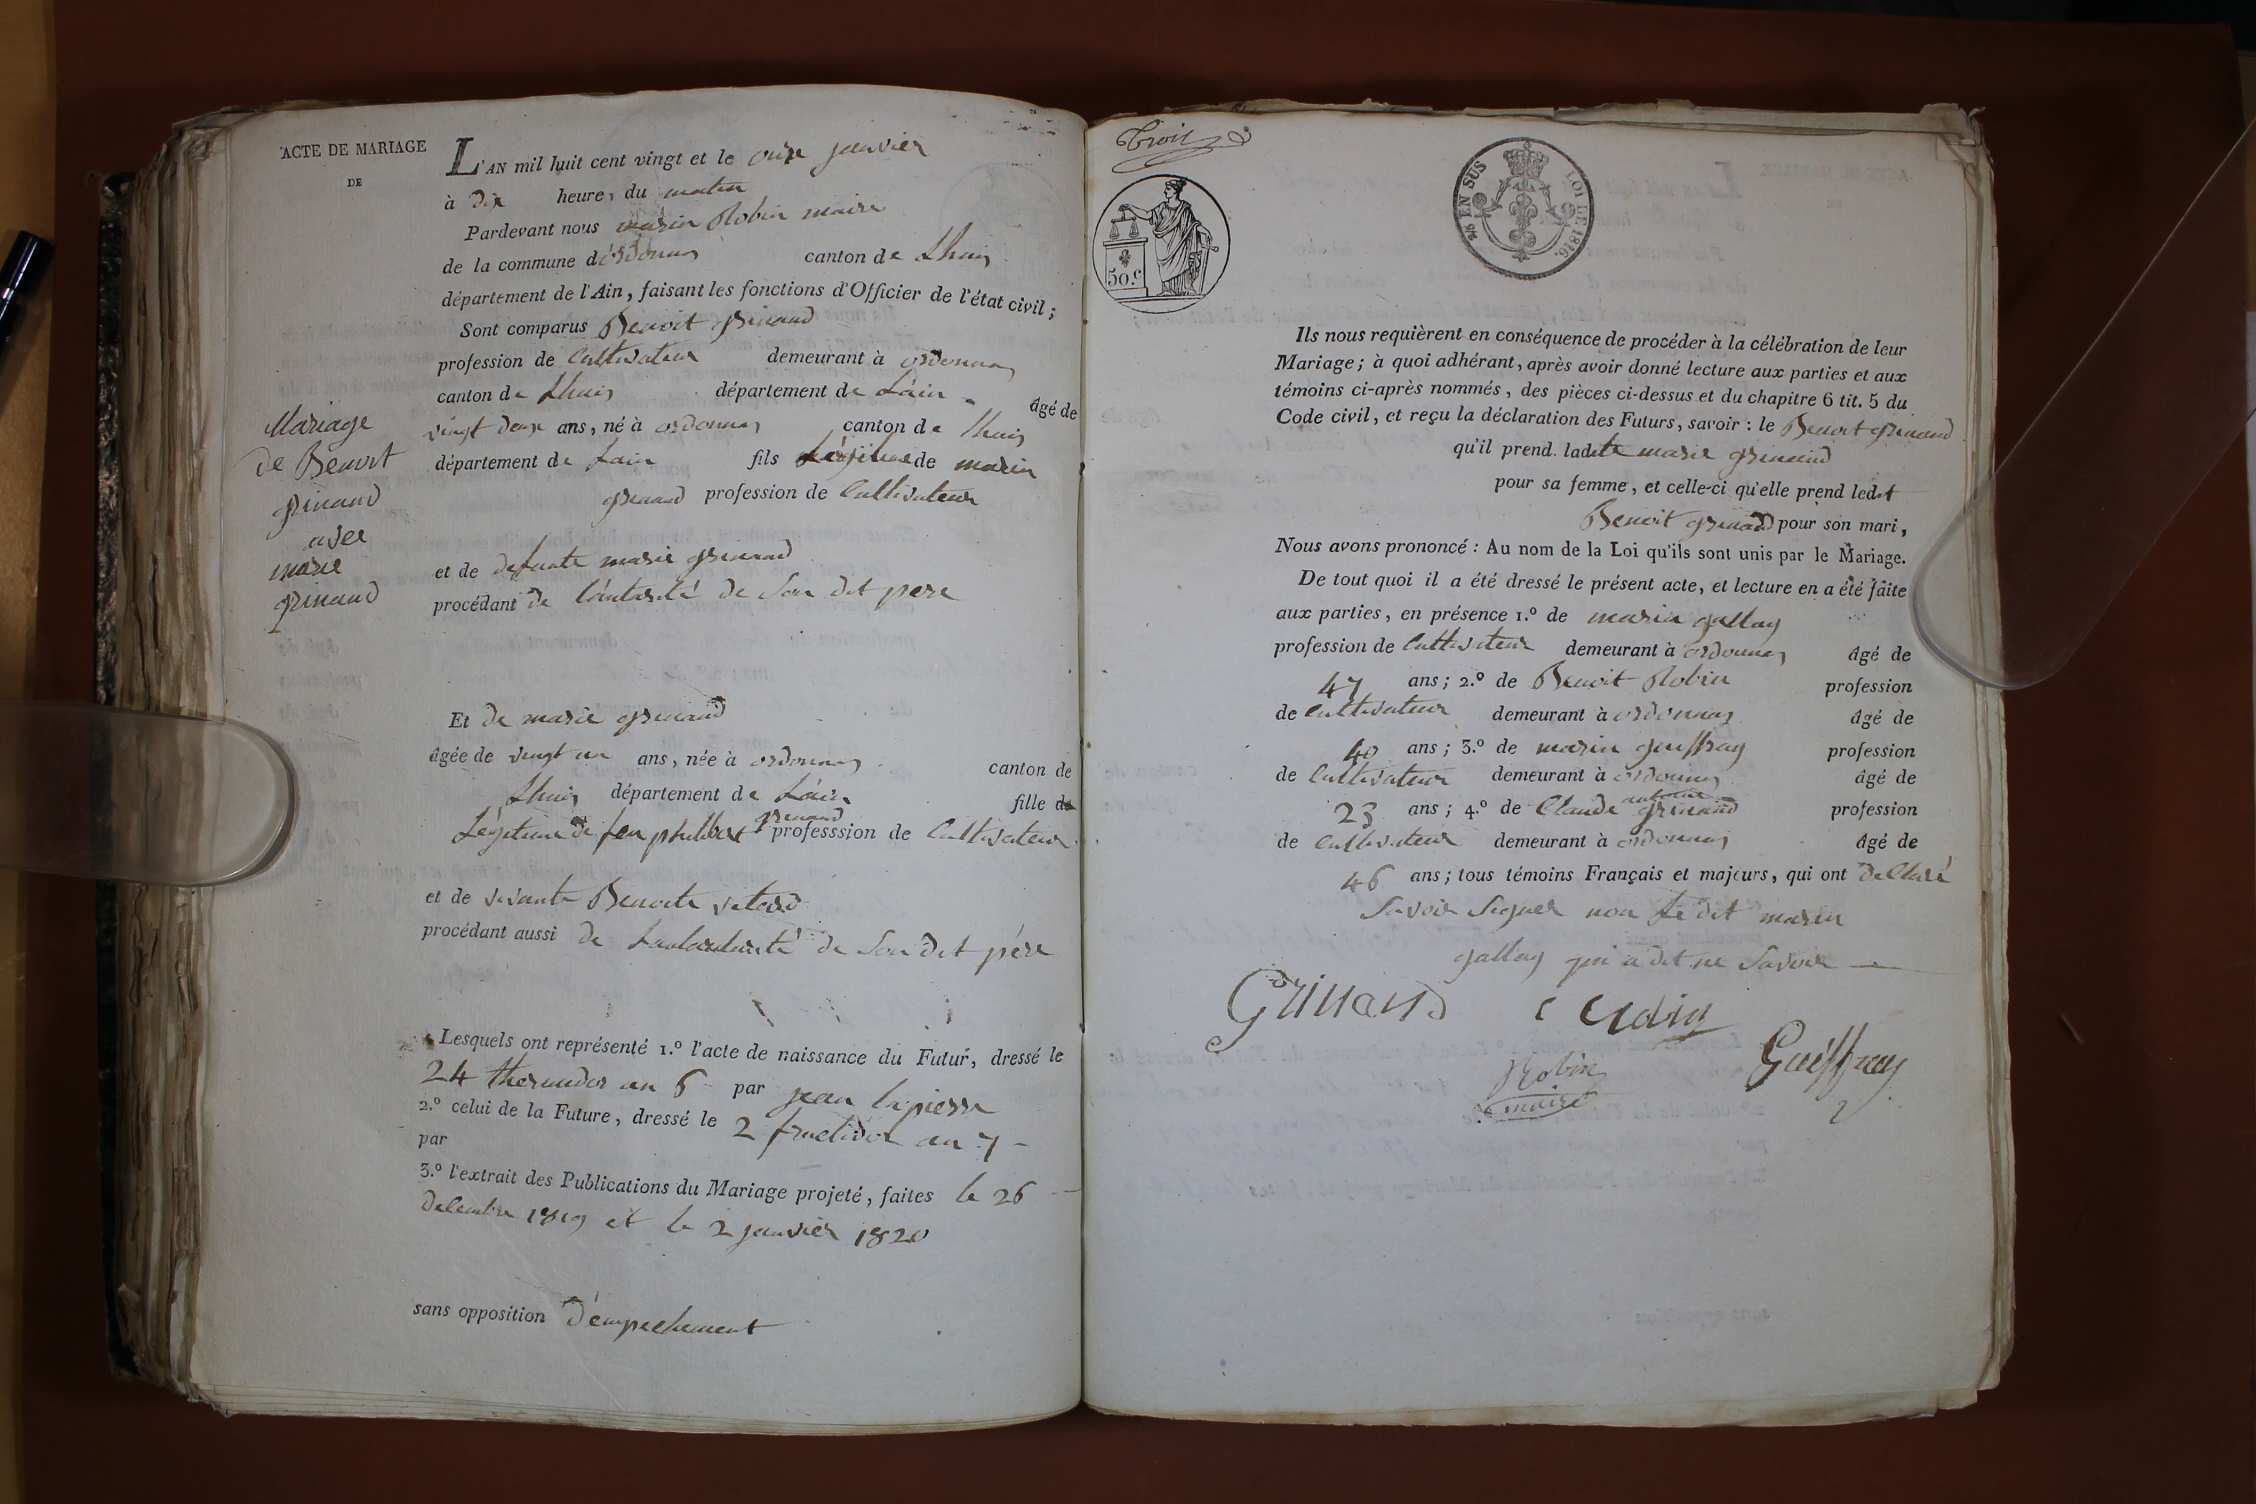 ACTE DE MARIAGE
DE
Mariage
de Benoit
grinand
avec
marie
grinand
L'AN mil huit cent vingt et le onze janvier
à dix heures du matin
Pardevant nous marin Robin maire
de la commune d'ordonnas canton de Lhuis
département de l'Ain, faisant les fonctions d'Officier de l'état civil;
Sont comparus Benoit grinand
profession de Cultivateur demeurant à ordonnas
canton de Lhuis département de L'ain âgé de
vingt deux ans, né à ordonnas canton de lhuis
département de Lain fils Légitime de marin
grinand profession de Cultivateur
et de defunte marie grinand
procédant de l'autorité de Son dit pere
Et de marie grinand
âgée de vingt un ans, née à ordonnas canton de
Lhuis département de L'ain fille de
Légitime de feu philibert grinand professsion de Cultivateur
et de vivante Benoite
procédant aussi de de Son dit père
Lesquels ont représenté 1.º l'acte de naissance du Futur, dressé le
24 thermidor an 6 par jean
2.º celui de la Future, dressé le 2 fructidor an 7
par
3.º l'extrait des Publications du Mariage projeté, faites le 26
decembre 1819 et le 2 janvier 1820
sans opposition d'empechement
Trois
50.c
EN SUS LOI DE 1816.
Ils nous requièrent en conséquence de procéder à la célébration de leur
Mariage; à quoi adhérant, après avoir donné lecture aux parties et aux
témoins ci-après nommés, des pièces ci-dessus et du chapitre 6 tit. 5 du
Code civil, et reçu la déclaration des Futurs, savoir : le Benoit grinand
qu'il prend ladite marie grinand
pour sa femme, et celle-ci qu'elle prend ledit
Benoit grinand pour son mari,
Nous avons prononcé : Au nom de la Loi qu'ils sont unis par le Mariage.
De tout quoi il a été dressé le présent acte, et lecture en a été faite
aux parties, en présence 1.º de marin gallay
profession de Cultivateur demeurant à ordonnas âgé de
47 ans; 2.º de Benoit Robin profession
de Cultivateur demeurant à ordonnas âgé de
40 ans; 3.º de marin gueffray profession
de Cultivateur demeurant à ordonnas âgé de
23 ans; 4.º de Claude antoine grinand profession
de Cultivateur demeurant à ordonnas âgé de
46 ans; tous témoins Français et majeurs, qui ont declaré
Savoir Signer non le dit marin
gallay qui a dit ne Savoir
Grinand
Robin
maire
Gueffray